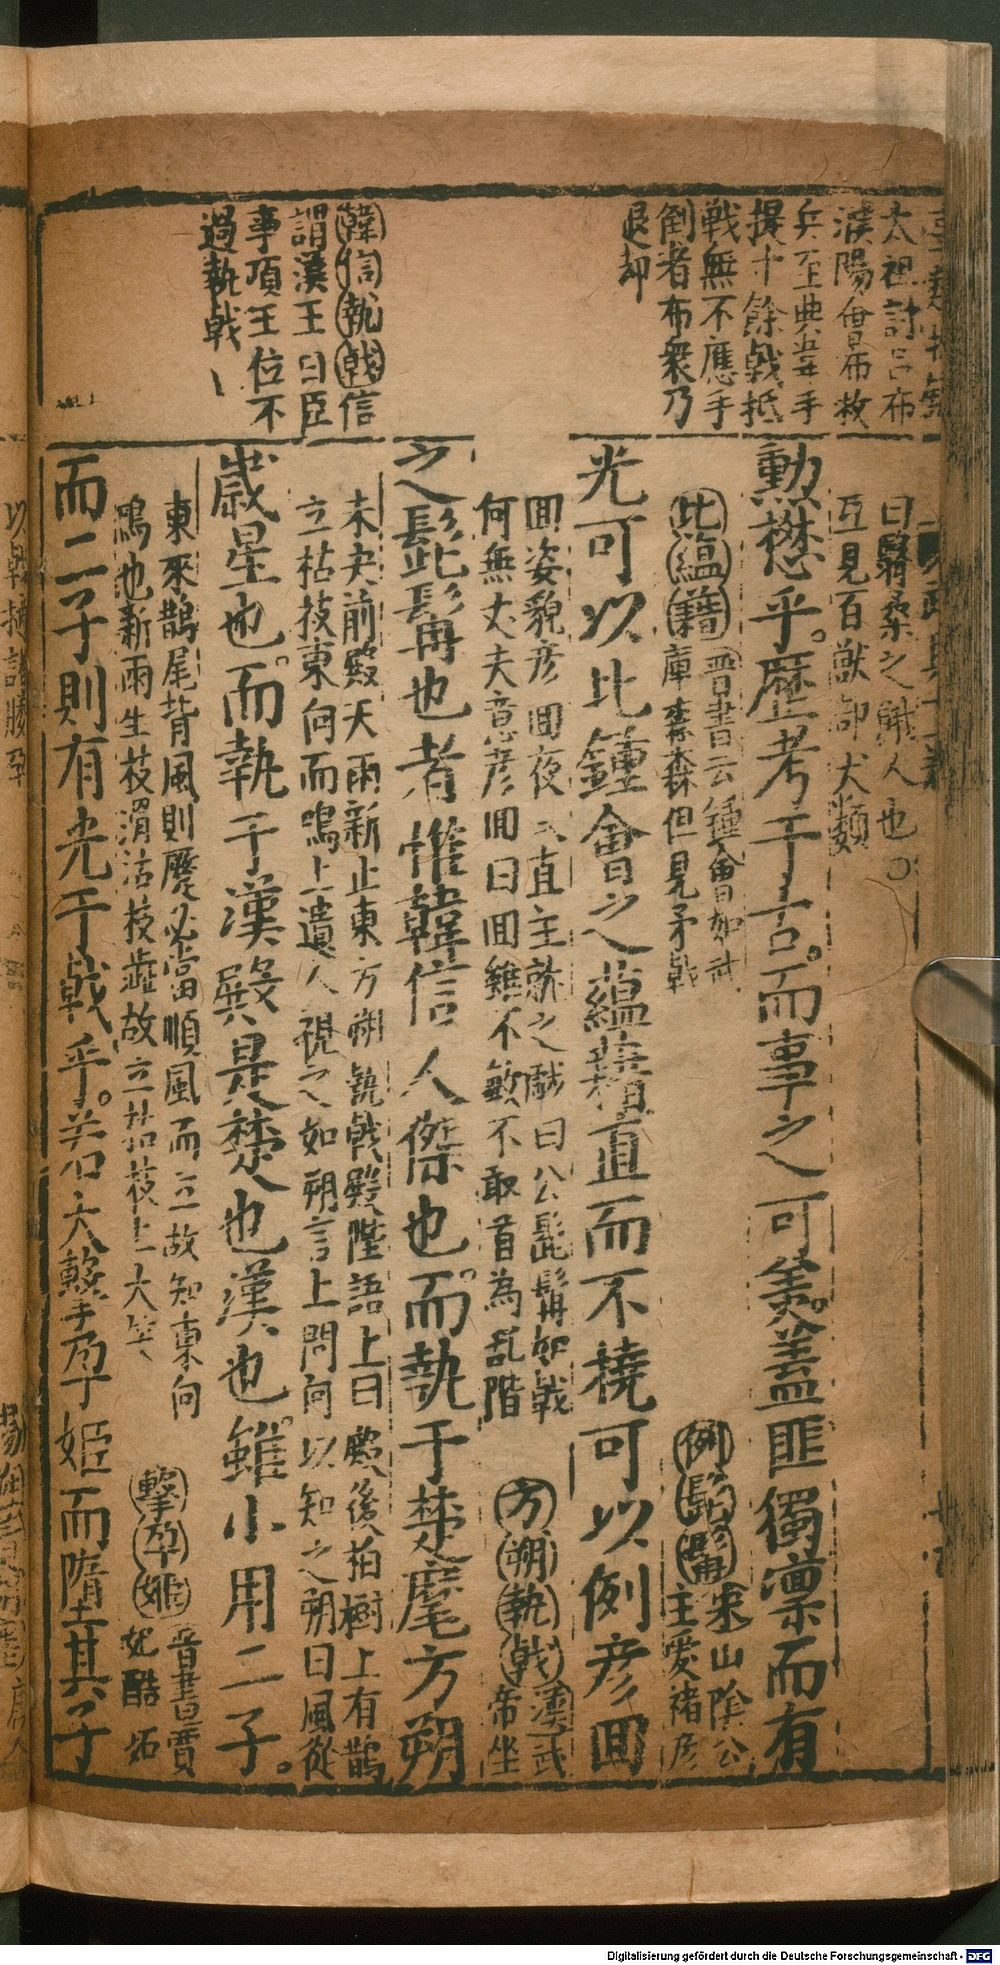 太祖討呂布
濮陽會布救
兵至典韋手
提十餘戟抵
戦無不應手
倒者布衆乃
退却
韓信執戟信
謂漢王曰臣
事項王位不
過執戟
曰翳桑之餓人也
互見百獸部犬類
勲懋乎歴考于古而事之可美蓋匪獨凜而有
比蘊藉晋書云鍾會如武
庫森森但見矛戟
例髭髯宋山陰公
主愛褚彦
光可以比鍾會之蘊藉直而不橈可以例彦囬
囬姿貌彦囬夜 直主就之 曰公髭髯如戟
何無丈夫意彦囬曰囬雖不敏不敢首為乱階
方朔執戟漢武
帝坐
之髭髯也者惟韓信人傑也而執于楚麾方朔
未央前殿天雨新止東方朔執戟殿陛語上曰殿後柏樹上有鵲
立枯枝東向而鳴上遣人視之如朔言上問何以知之朔曰風從
歳星也而執于漢殿是楚也漢也雖小用二子
東來鵲尾背風則蹙必當順風而立故知東向
鳴也新雨生枝滑沽枝澁故立枯枝上大笑
擊孕姬晋書賈
妃酷妬
而二子則有光于戟乎若夫擊孕姬而隋其子
Digitalisierung gefördert durch die Deutsche Forschungsgemeinschaft - DFG